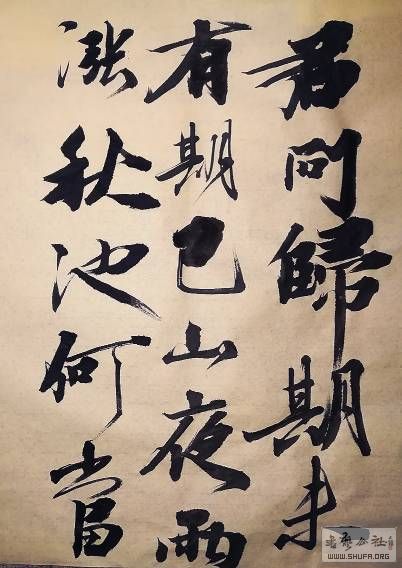 君问歸期未
有期巴山夜雨
涨秋池何當
书法公社
WWW.SHUFA.ORG